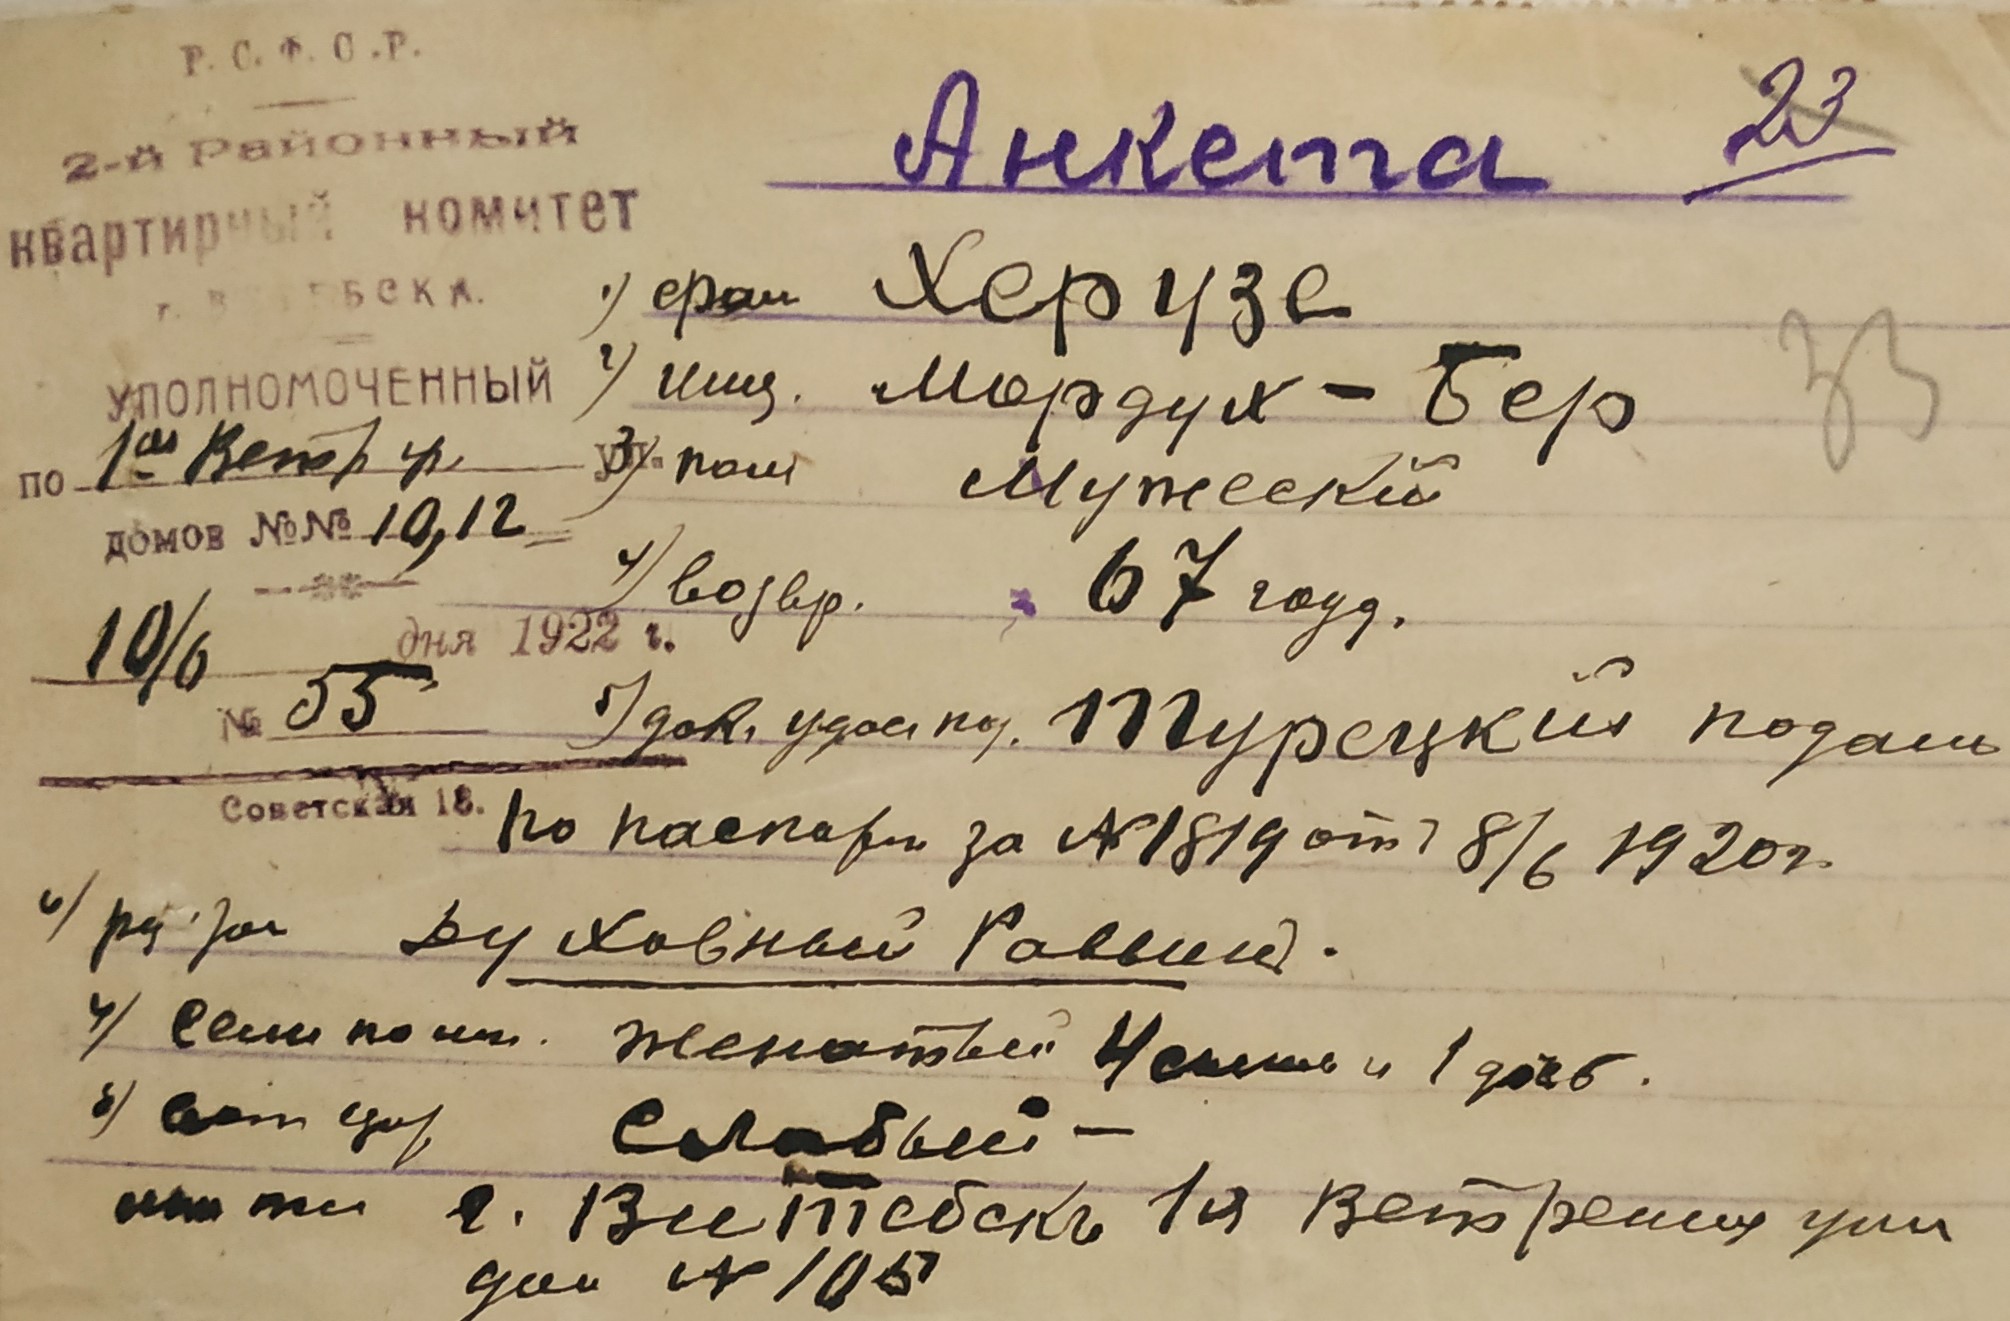 Р.С.Ф.С.Р.
2-й Районный
квартирный комитет
г. ВИТЕБСКА.
УПОЛНОМОЧЕННЫЙ
по 1ой Ветр ул.
домов №№ 10, 12
10/6 дня 1922 г.
№ 55
Советская 18.
Анкета 23
33
1) фам Херузе
2) имя. Мордух-Бер
3) пол Мужеский
4) возвр. 67 году.
5) док. Турецкий подан
по паспорт за № 1819 от 8/6 1920 г.
6) Духовный Раввин.
7) Сем полож. Женатый 4 сынов и 1 дочь.
8) Слабый —
г. Витебскъ 1я Ветреная ули
дом № 10